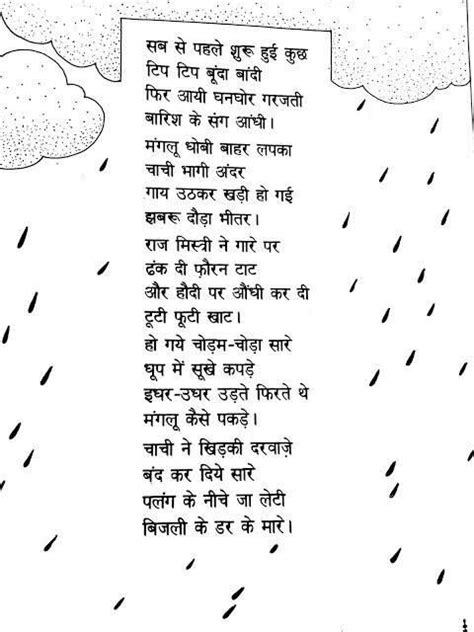 सब से पहले शुरू हुई कुछ
टिप टिप बूंदा बांदी
फिर आयी घनघोर गरजती
बारिश के संग आंधी।
मंगलू धोबी बाहर लपका
चाची भागी अंदर
गाय उठकर खड़ी हो गई
झबरू दौड़ा भीतर।
राज मिस्त्री ने गारे पर
ढंक दी फ़ौरन टाट
और हौदी पर औंधी कर दी
टूटी फूटी खाट।
हो गये चोड़म-चोड़ा सारे
धूप में सूखे कपड़े
इधर-उधर उड़ते फिरते थे
मंगलू कैसे पकड़े।
चाची ने खिड़की दरवाज़े
बंद कर दिये सारे
पलंग के नीचे जा लेटी
बिजली के डर के मारे।